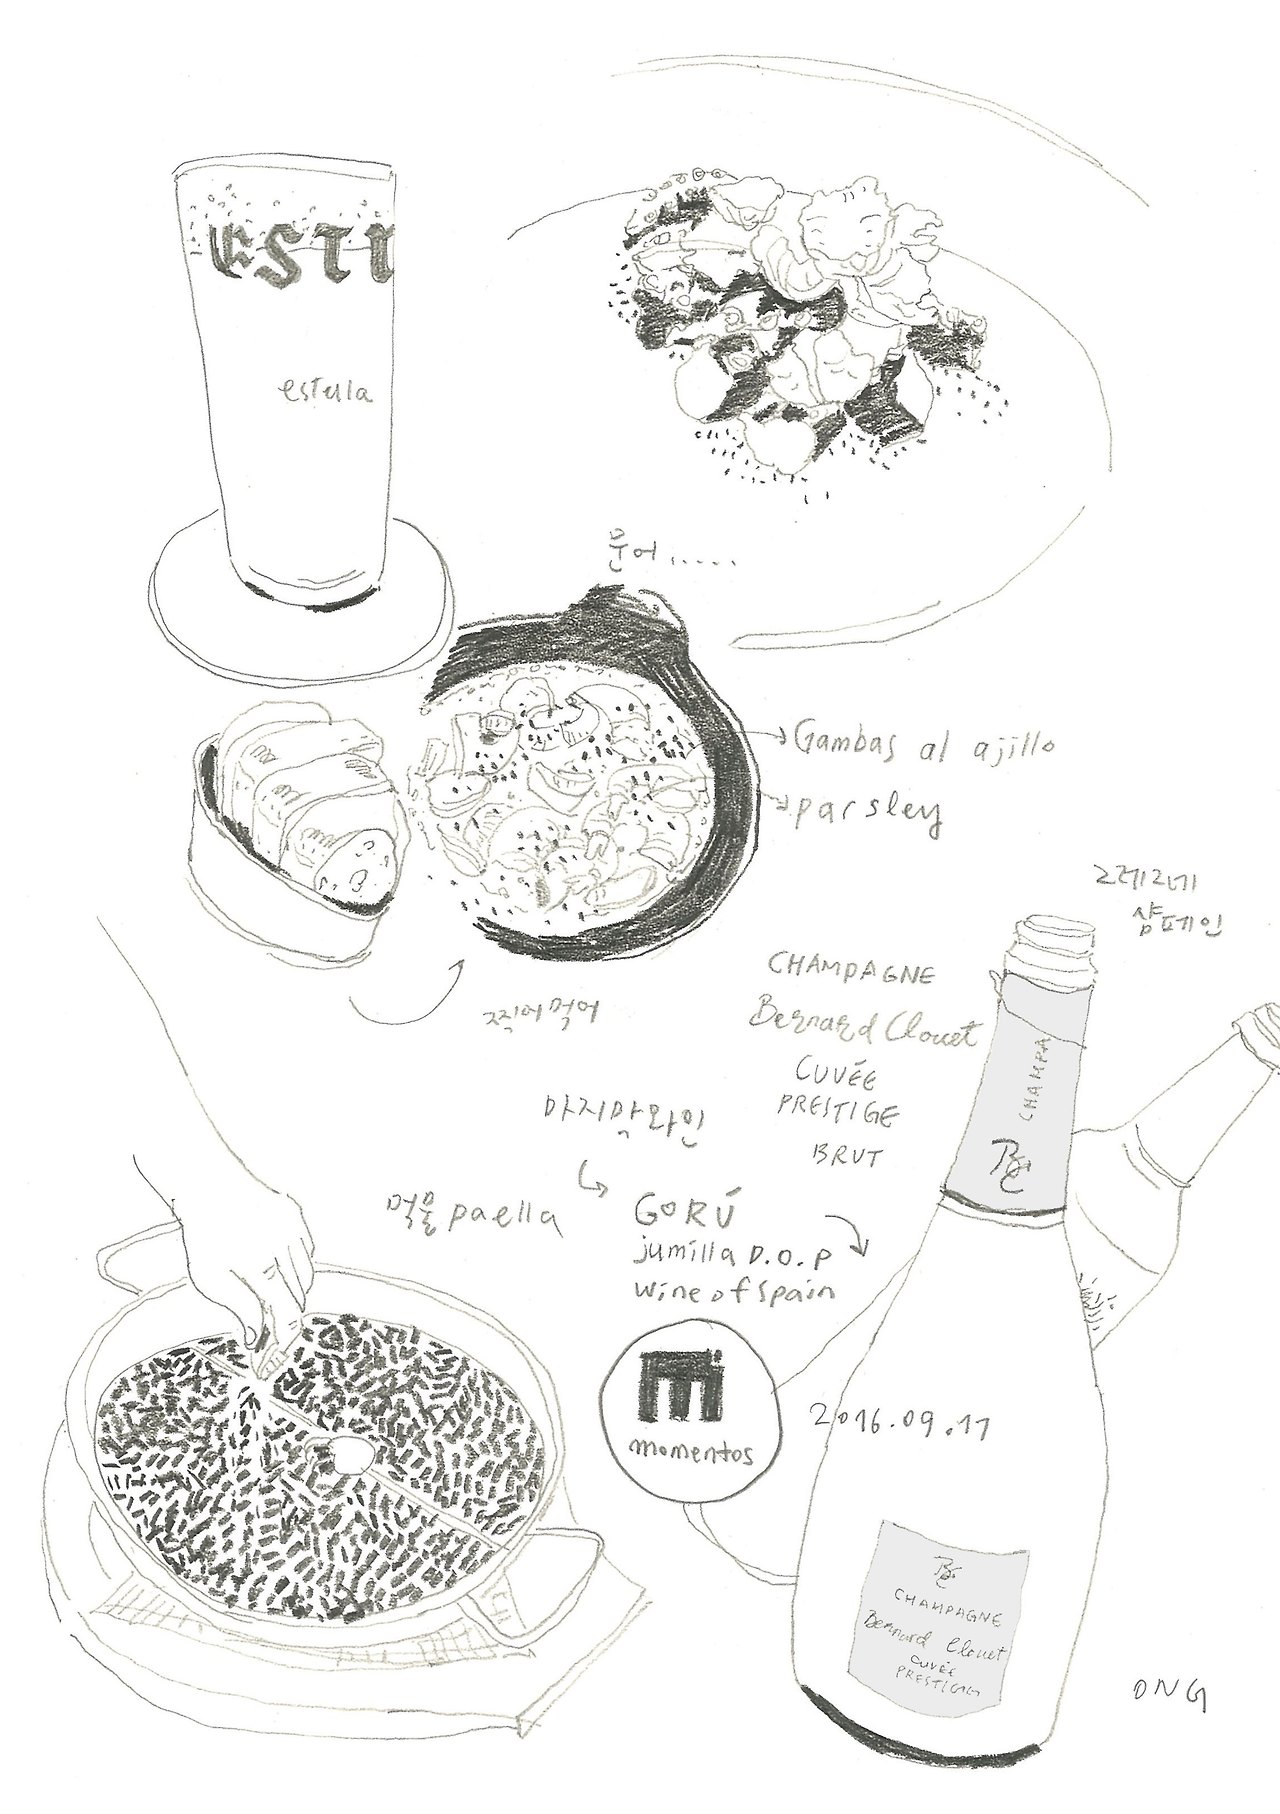 ESTI
estella
문어......
Gambas al ajillo
parsley
찍어먹어
그레그네
샴페인
CHAMPAGNE
Bernard Clouet
CUVÉE
PRESTIGE
BRUT
CHAMPA
BC
마지막와인
GORÚ
jumilla D.O.P
wine of Spain
먹물 paella
momentos
2016.09.11
BC
CHAMPAGNE
Bernard Clouet
CUVÉE
PRESTIGE
ONG